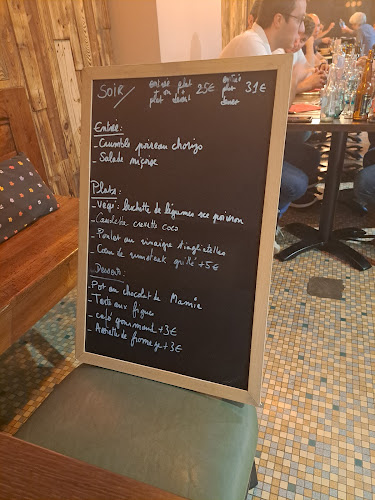 SOIR/
entrée plat
ou
plat dessert 25€
entrée
plat
dessert 31€
Entrée:
- Crumble poireau chorizo
- Salade niçoise
Plats:
- Végé: Bûchette de légumes sce poivron
- Cassolette crevette coco
- Poulet au vinaigre tagliatelles
- Cœur de rumsteak grillé +5€
Desserts:
- Pot au chocolat de Mamie
- Tarte aux figues
- café gourmand +3€
- Assiette de fromage +3€